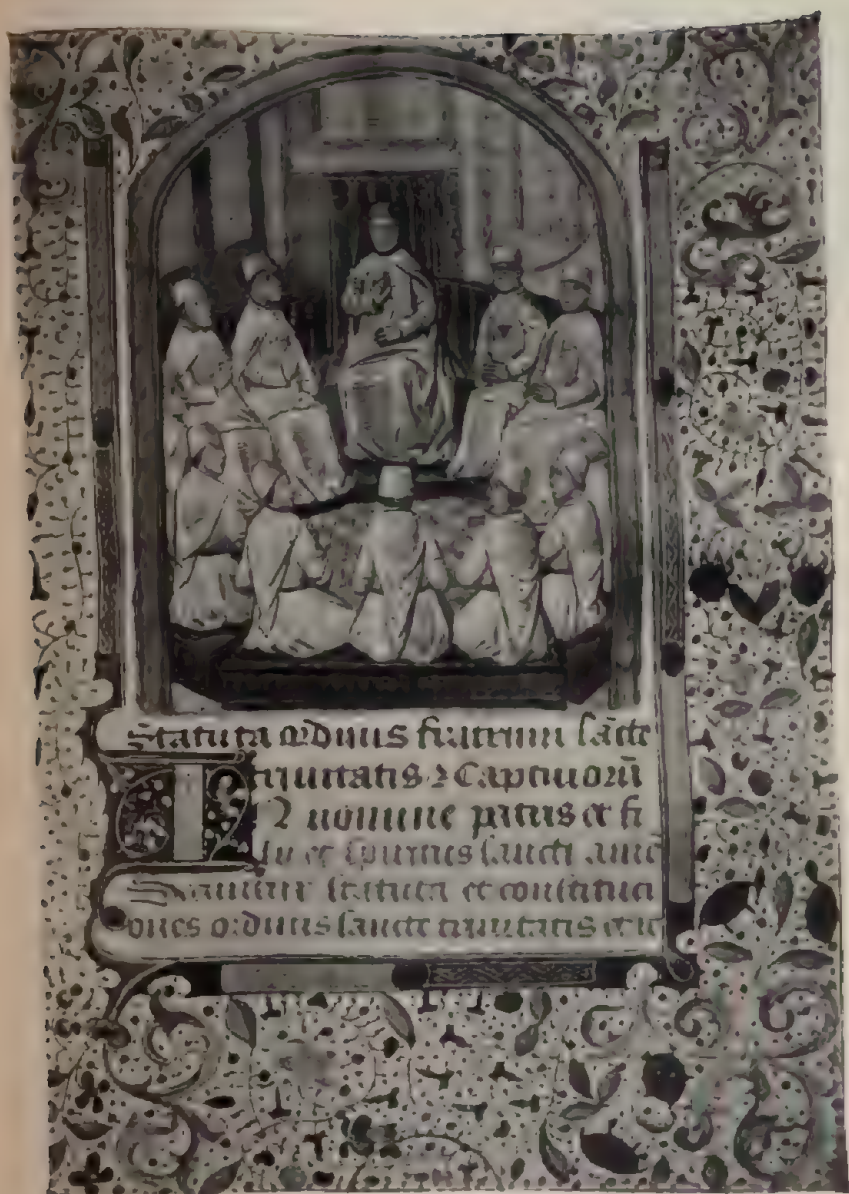 Statuta ordinis fratrum sācte
trinitatis ⁊ Captiuorū
In nomine patris et fi
lii et spiritus sancti amē
statuta et constituci
ones ordinis sancte trinitatis et